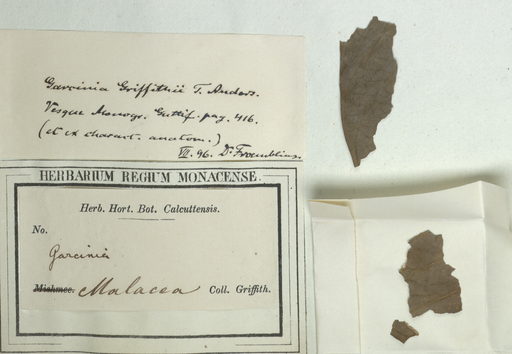 Garcinia Griffithii T. Anders.
Vesque Monogr. Guttif. pag. 416.
(et ex charact. anatom.)
VII. 96. Dr
HERBARIUM REGIUM MONACENSE.
Herb. Hort. Bot. Calcuttensis.
No.
Garcinia
Mishmee. Malacca Coll. Griffith.